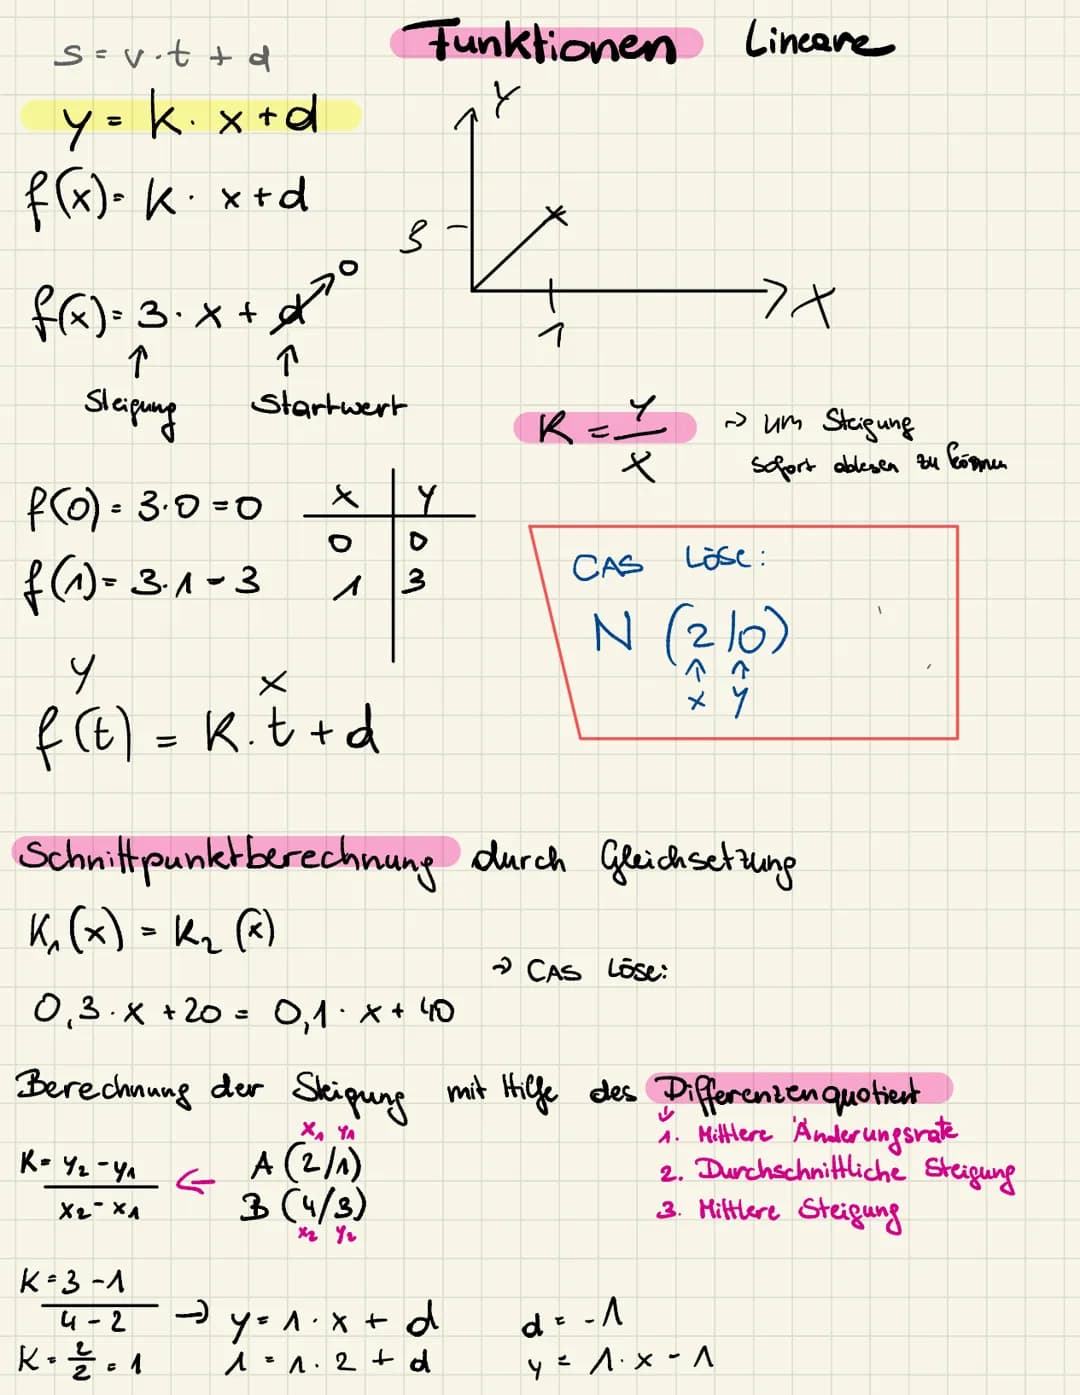 Funktionen Lineare
s = v · t + d
y = k · x + d
f(x) = k · x + d
f(x) = 3 · x + d 0
↑ ↑
Steigung Startwert
Y
3
1
X
K = Y/X → um Steigung
sofort ablesen zu können
f(0) = 3·0 = 0
f(1) = 3·1 - 3
x | y
0 | 0
1 | 3
CAS Löse:
N (2/0)
↑ ↑
x y
y x
f(t) = K · t + d
Schnittpunktberechnung durch Gleichsetzung
K₁(x) = K₂(x)
→ CAS Löse:
0,3 · x + 20 = 0,1 · x + 40
Berechnung der Steigung mit Hilfe des Differenzenquotient
↓
1. Mittlere Änderungsrate
2. Durchschnittliche Steigung
3. Mittlere Steigung
x₁ y₁
A (2/1)
B (4/3)
x₂ y₂
K = y₂ - y₁ ←
x₂ - x₁
K = 3 - 1
4 - 2
K = 2/2 = 1
→ y = 1 · x + d
1 = 1 · 2 + d
d = -1
y = 1 · x - 1